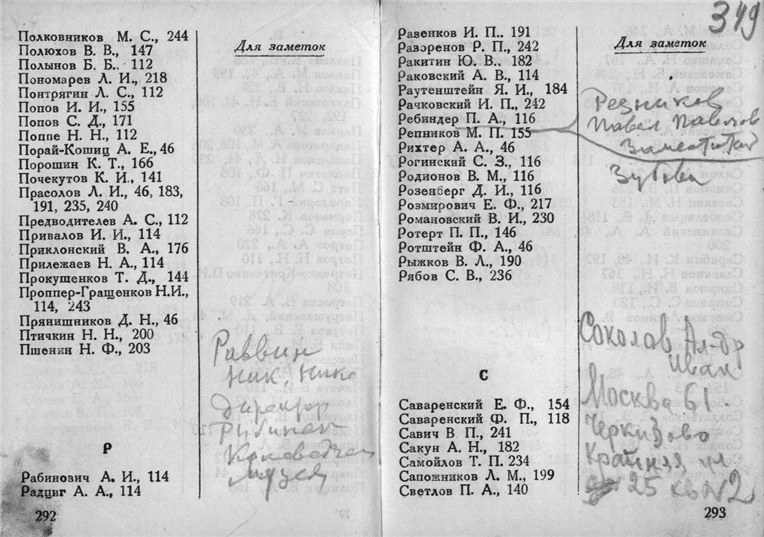 Полковников М. С., 244
Полюхов В. В., 147
Полынов Б. Б., 112
Пономарев Л. И., 218
Понтрягин Л. С., 112
Попов И. И., 155
Попов С. Д., 171
Поппе Н. Н., 112
Порай-Кошиц А. Е., 46
Порошин К. Т., 166
Почекутов К. И., 141
Прасолов Л. И., 46, 183,
191, 235, 240
Предводителев А. С., 112
Привалов И. И., 114
Приклонский В. А., 176
Прилежаев Н. А., 114
Прокушенков Т. Д., 144
Проппер-Гращенков Н.И.,
114, 243
Прянишников Д. Н., 46
Птичкин Н. Н., 200
Пшенин Н. Ф., 203
Р
Рабинович А. И., 114
Радциг А. А., 114
292
Для заметок
Раввин
Ник. Ник.
Директор
музея
349
Равенков И. П.. 191
Разоренов Р. П., 242
Ракитин Ю. В., 182
Раковский А. В., 114
Раутенштейн Я. И., 184
Рачковский И. П., 242
Ребиндер П. А., 116
Репников М. П. 155
Рихтер А. А., 46
Рогинский С. З., 116
Родионов В. М., 116
Розенберг Д. И., 116
Розмирович Е. Ф., 217
Романовский В. И., 230
Ротерт П. П., 146
Ротштейн Ф. А., 46
Рыжков В. Л., 190
Рябов С. В., 236
С
Саваренский Е. Ф., 154
Саваренский Ф. П., 118
Савич В П., 241
Сакун А. Н., 182
Самойлов Т. П. 234
Сапожников Л. М., 199
Светлов П. А., 140
Для заметок
Резников
Павел Павлов
Заместител
Зубова
Соколов Ал-др
Иван
Москва 61
Черкизово
Крайняя ул
25 кв №2
293